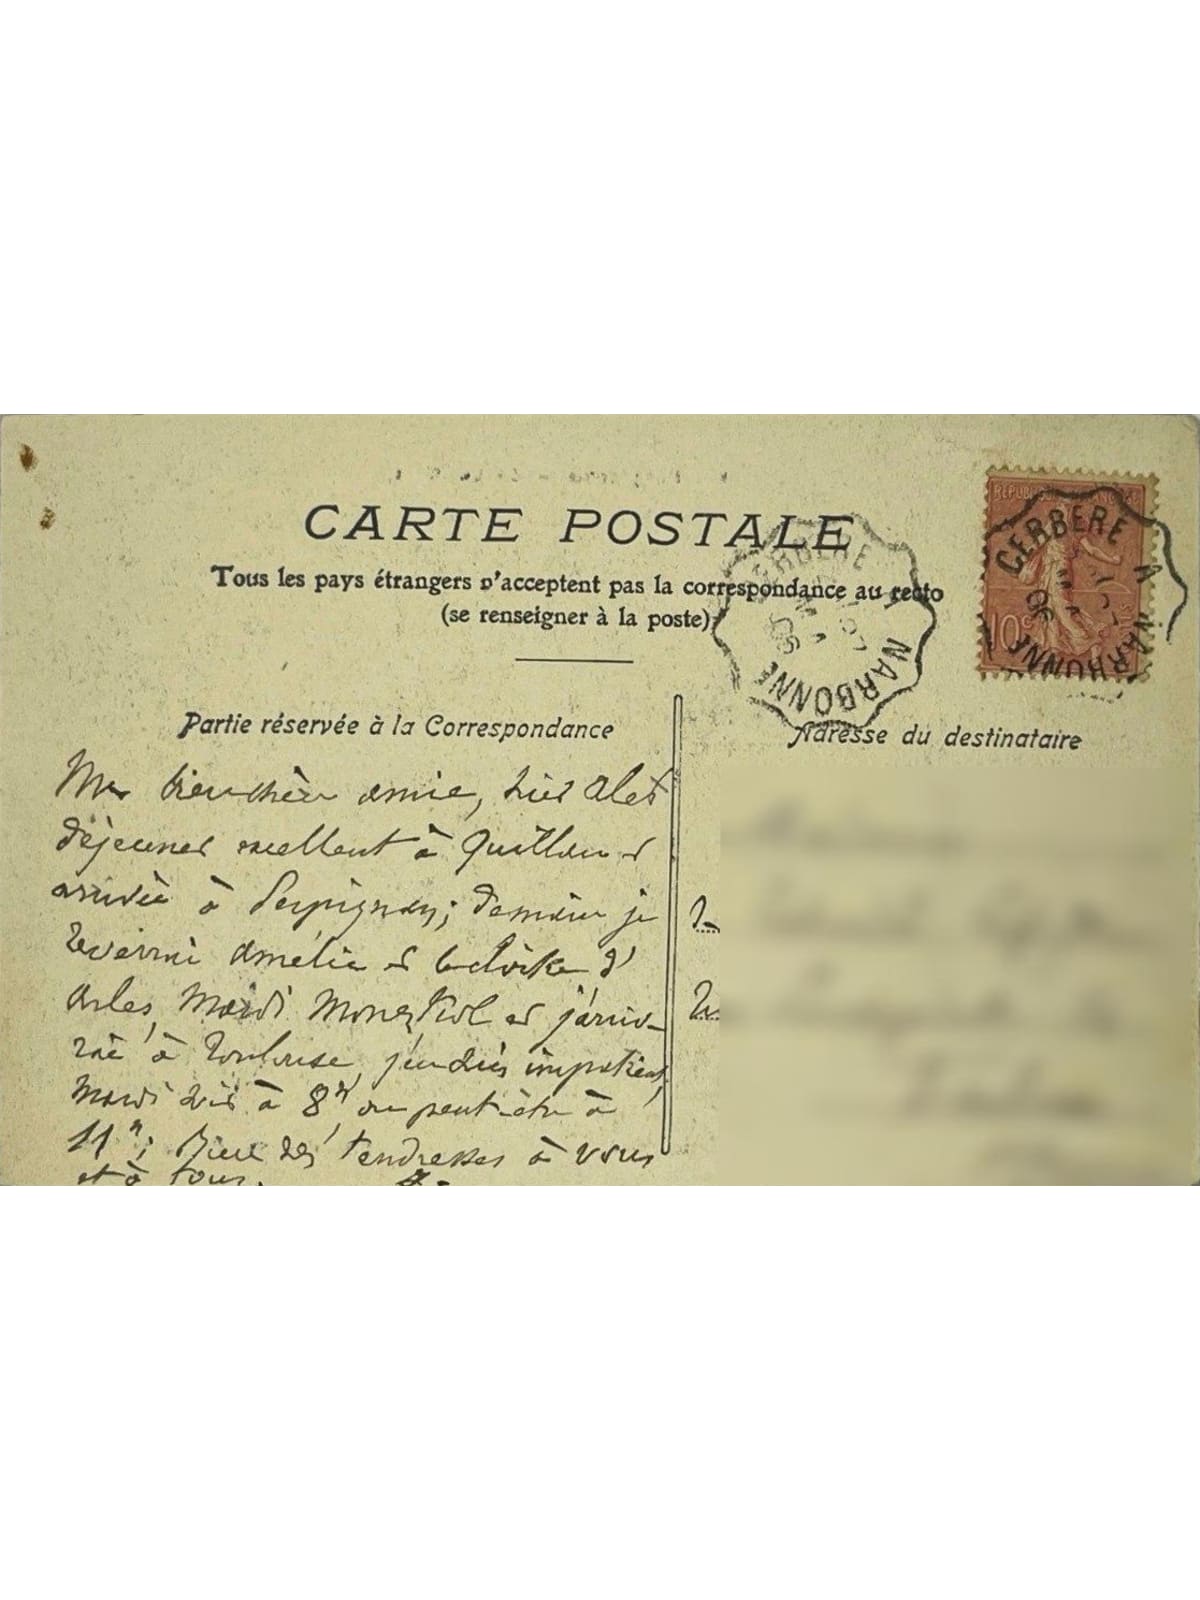 CARTE POSTALE
Tous les pays étrangers n'acceptent pas la correspondance au recto
(se renseigner à la poste)
CERBÈRE A NARBONNE
RÉPUBLIQUE FRANÇAISE
10c
CERBERE A NARBONNE
Partie réservée à la Correspondance
Adresse du destinataire
Ma bien chère amie, hier Alet
déjeuner excellent à Quillan et
arrivée à Perpignan; demain je
reverrai Amélie et le cloître d'
Arles, Mardi et j'arrive-
rai à Toulouse, impatient,
Mardi soir à 8h ou peut-être à
11h; Bien des tendresses à vous
et à tous.